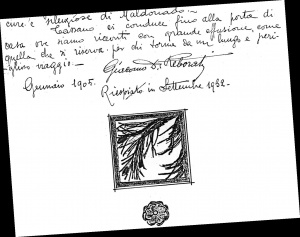 cure e attenzione di Maldonado —
Teabano ci conduce fino alla porta di
casa ove siamo ricevuti con grande effusione, come
quella che si riserva per chi torna da un lungo e peri-
glioso viaggio. —
Giacomo D. Reborati
Gennaio 1905.
Ricopiato in Settembre 1932.